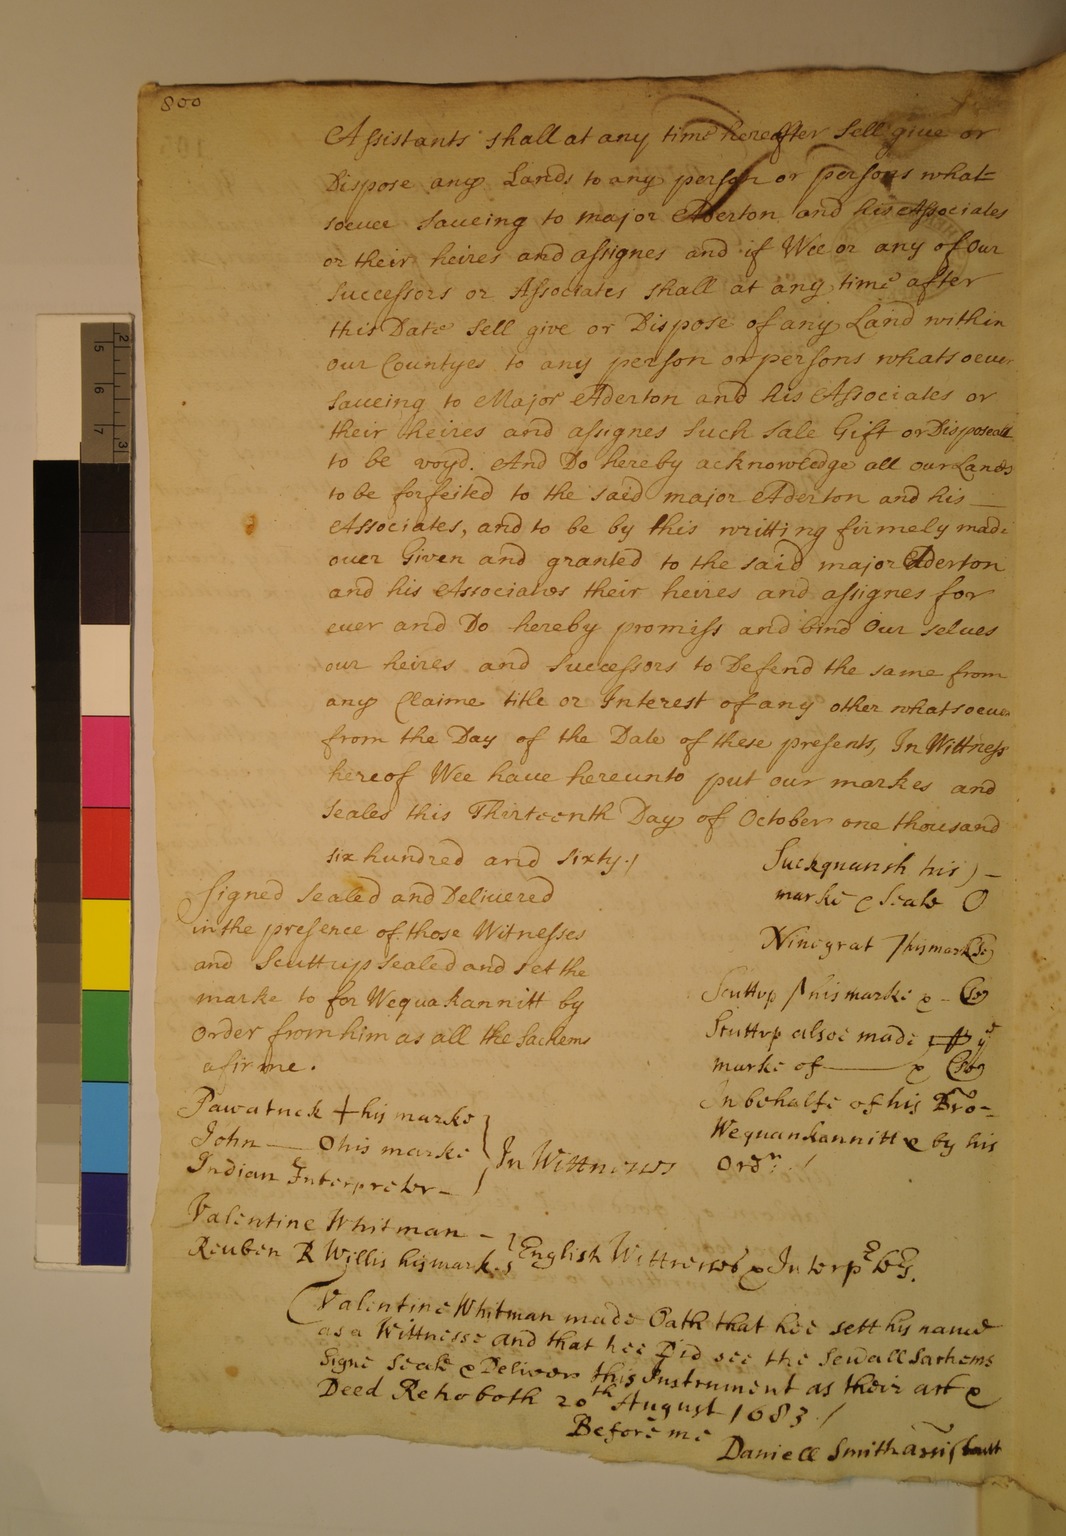 800
Assistants shall at any time hereafter Sell giue or
Dispose any Lands to any person or persons what=
soeuer saueing to major Aderton and his Associates
or their heires and assignes and if Wee or any of Our
Successors or Associates shall at any time after
this Date Sell giue or Dispose of any Land within
our Countyes to any person or persons whatsoeuer
saueing to Major Aderton and his Associates or
their heires and assignes Such Sale Gift or Disposeall
to be voyd. And Do hereby acknowledge all our Lands
to be forfeited to the said major Aderton and his
Associates, and to be by this writting firmely made
ouer Given and granted to the said major Aderton
and his Associates their heires and assignes for
euer and Do hereby promiss and bind Our selues
our heires and Successors to Defend the same from
any Claime title or Interest of any other whatsoeuer
from the Day of the Date of these presents, In Wittness
hereof Wee haue hereunto put our markes and
Seales this Thirteenth Day of October one thousand
six hundred and sixty./
Suckquansh his
marke & Seale O
Ninegrat his mark
Scuttup his marke &
Scuttup alsoe made ye
marke of &
In behalfe of his Bro-
Wequankannitt & by his
Ordr. /
Signed Sealed and Delivered
in the presence of those Witnesses
and Scuttup sealed and set the
marke to for Wequakannitt by
Order from him as all the Sachems
afirme.
Pawatuck + his marke
John O his marke
Indian Interpreter
In Wittneses
Valentine Whitman
Reuben R Willis his mark.
English Wittneses & Interpters.
Valentine Whitman made Oath that hee sett his name
as a Wittnesse and that hee Did see the Seuall Sachems
Signe Seale & Deliver this Instrument as their act &
Deed Rehoboth 20th August 1683./
Before me
Daniell Smith Assistant